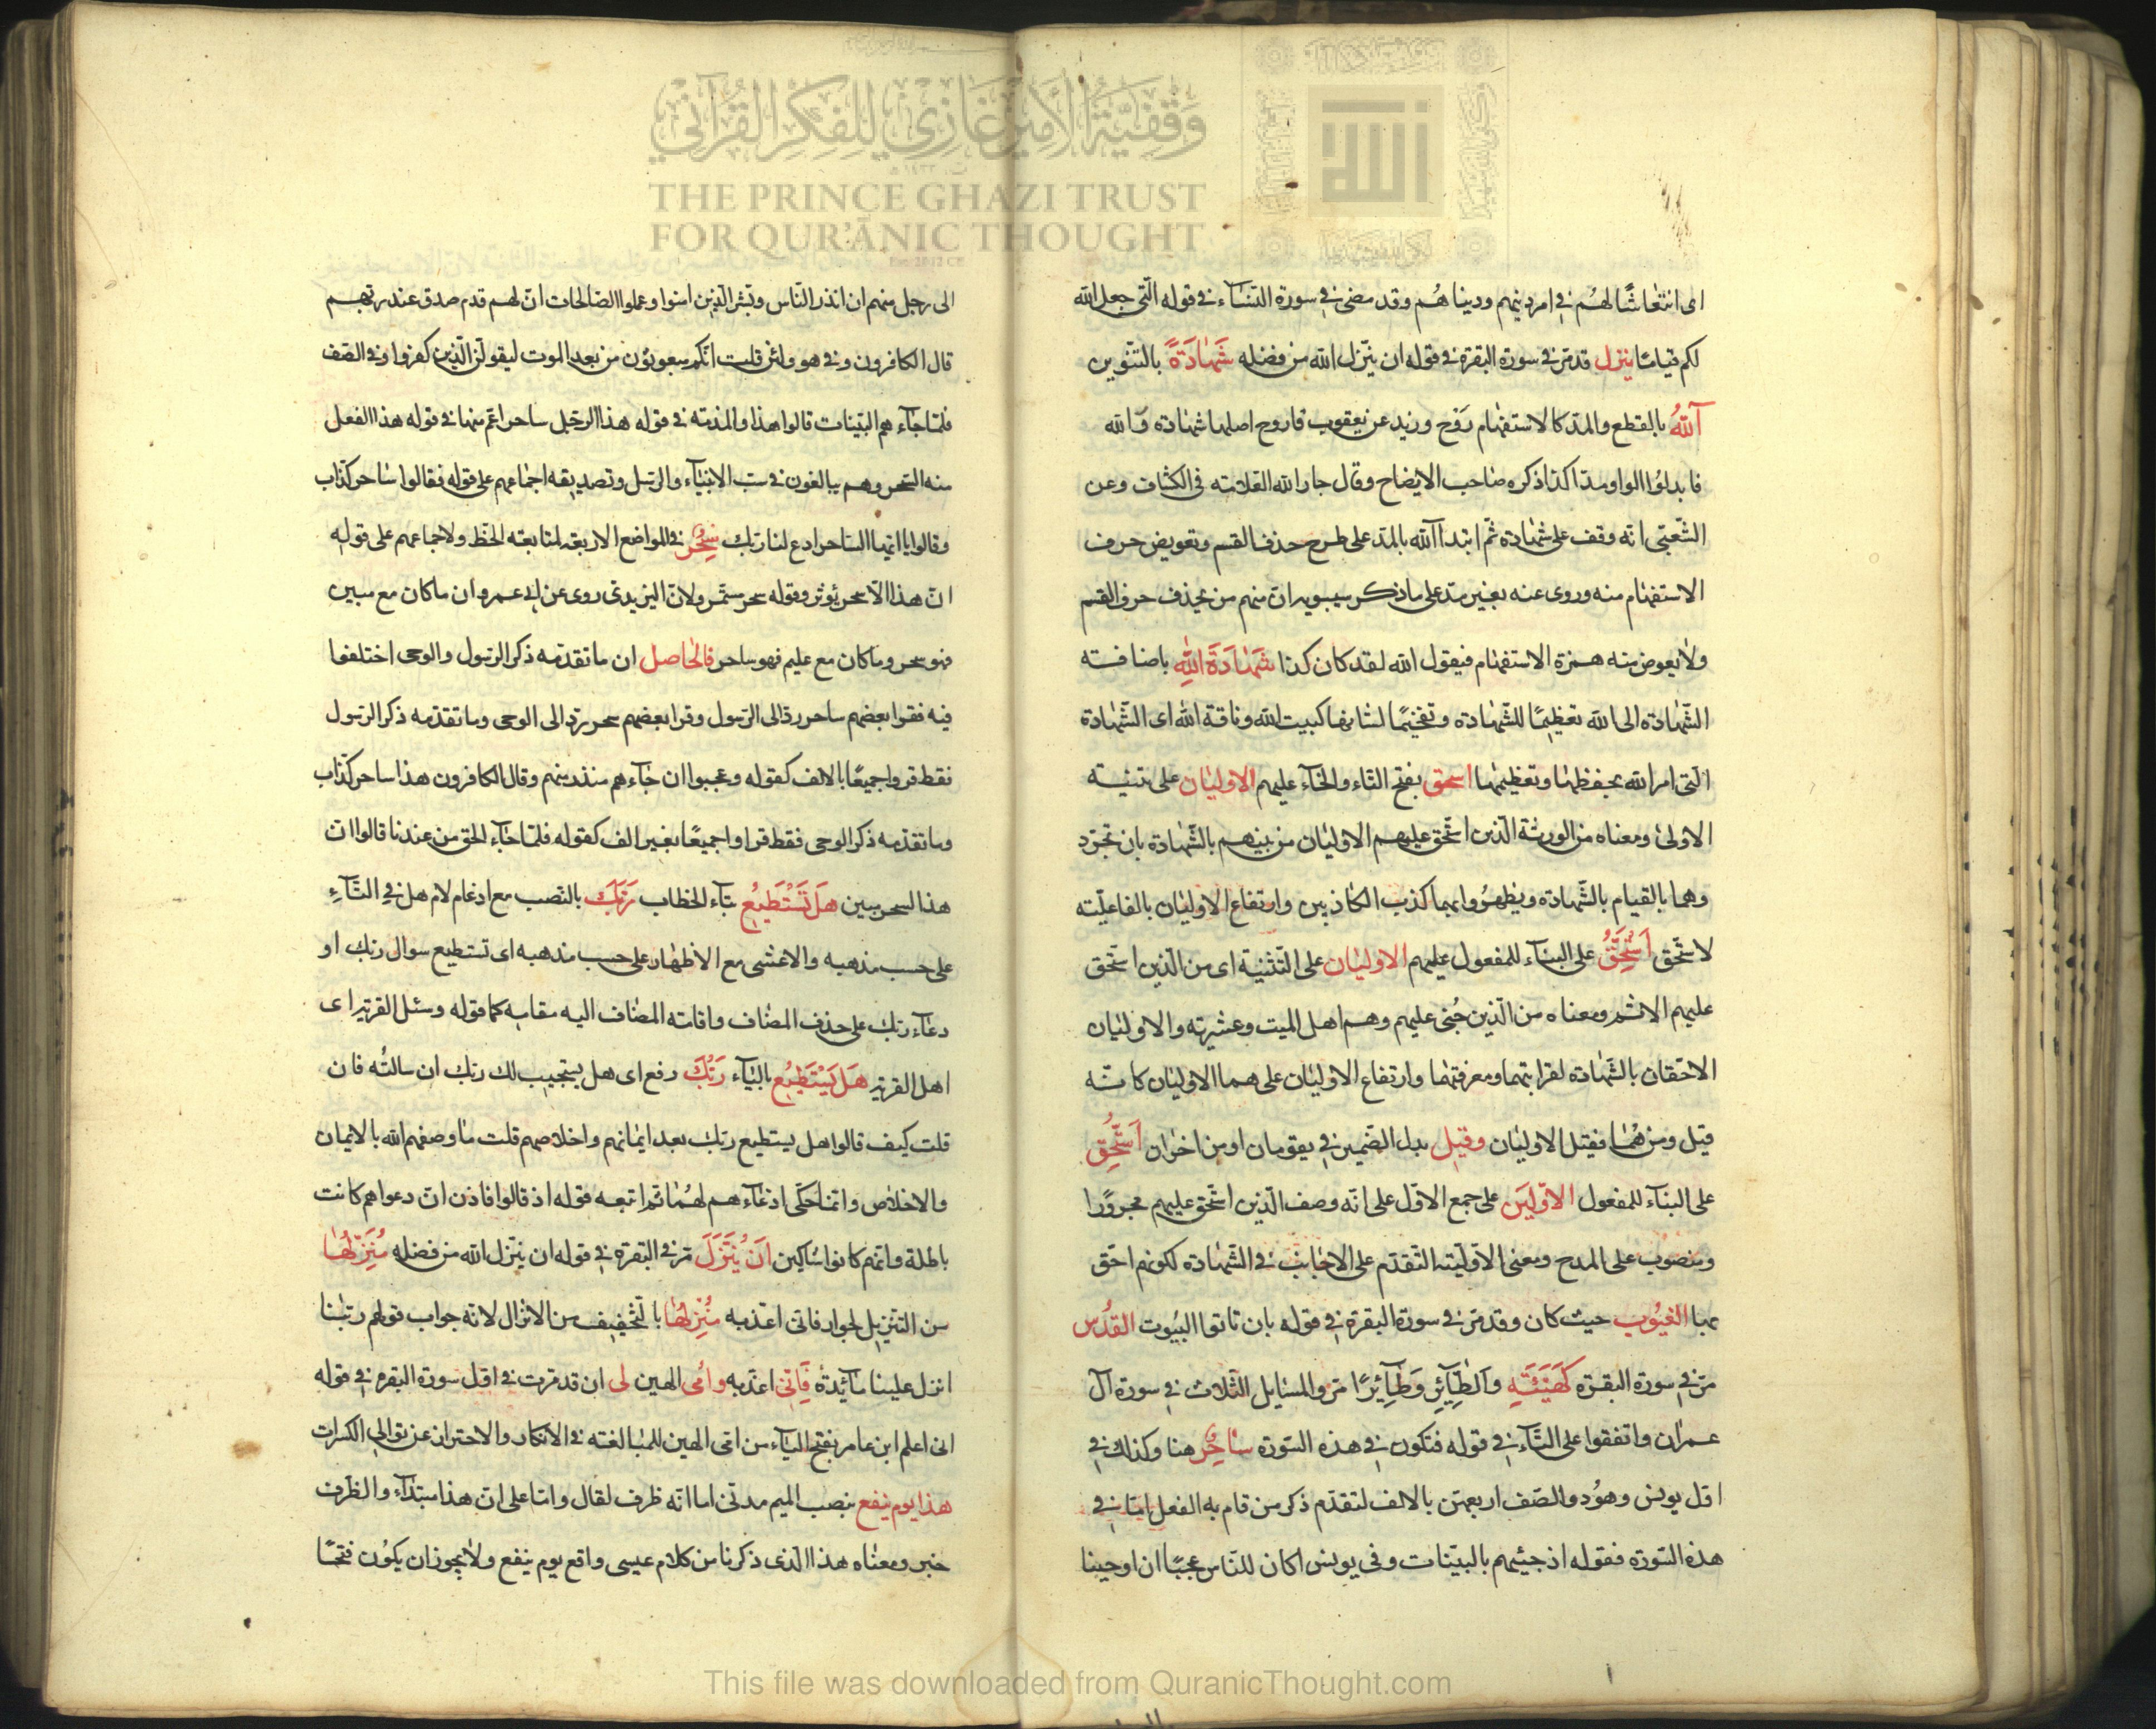 وقفية الأمير غازي للفكر القرآني
THE PRINCE GHAZI TRUST
FOR QUR'ĀNIC THOUGHT
اى انتعاشا لهم فى امر دينهم ودنياهم وقد مضى فى سورة النساء فى قوله التى جعل الله
لكم قياما ينزل قد مر فى سورة البقرة فى قوله ان ينزل الله من فضله شهادة بالتنوين
آلله بالقطع والمد كالاستفهام روح وزيد عن يعقوب اصلها شهادة والله
فابدلوا الواو مدا كذا ذكره صاحب الايضاح وقال جار الله العلامته فى الكشاف وعن
الشعبى انه وقف على شهادة ثم ابتدا آلله بالمد على طرح حذف القسم وتعويض حرف
الاستفهام منه وروى عنه بغير مد على ما ذكر سيبويه ان منهم من يحذف حرف القسم
ولا يعوض منه همزة الاستفهام فيقول الله لقد كان كذا شهادة الله باضافته
الشهادة الى الله تعظيما للشهادة وتفخيما لشانها كبيت الله وناقة الله اى الشهادة
التى امر الله بحفظها وتعظيمها استحق بفتح التاء والحاء عليهم الاوليان على تثنية
الاولى ومعناه من الورثة الذين استحق عليهم الاوليان من بينهم بالشهادة بان تجرد
وهما بالقيام بالشهادة ويظهروا بهما كذب الكاذبين وارتفاع الاوليان بالفاعليته
لاستحق استحق على البناء للمفعول عليهم الاوليان على التثنية اى من الذين استحق
عليهم الاثم ومعناه من الذين جنى عليهم وهم اهل الميت وعشيرته والاوليان
الاحقان بالشهادة لقرابتهما ومعرفتهما وارتفاع الاوليان على هما الاوليان كانه
قيل ومن هما فقيل الاوليان وقيل بدل الضمير فى يقومان او من اخران استحق
على البناء للمفعول الاولين على جمع الاول على انه وصف الذين استحق عليهم مجرورا
ومنصوب على المدح ومعنى الاوليته التقدم على الاجانب فى الشهادة لكونهم احق
بها الغيوب حيث كان وقد مر فى سورة البقرة فى قوله بان تاتوا البيوت القدس
مر فى سورة البقرة كهيئة والطاير وطايرا مر والمسايل الثلاث فى سورة آل
عمران واتفقوا على التاء فى قوله فتكون فى هذه السورة ساحر هنا وكذلك فى
اول يونس وهود والصف اربعهن بالالف لتقدم ذكر من قام به الفعل اما فى
هذه السورة فقوله اذ جيتهم بالبينات وفى يونس اكان للناس عجبا ان اوحينا
الى رجل منهم ان انذر الناس وبشر الذين امنوا وعملوا الصالحات ان لهم قدم صدق عند ربهم
قال الكافرون وفى هو ولئن قلت انكم مبعوثون من بعد الموت ليقولن الذين كفروا وفى الصف
فلما جاءهم البينات قالوا هذا والمذمته فى قوله هذا الرجل ساحر اعم منها فى قوله هذا الفعل
منه السحر وهم يبالغون فى سب الانبياء والرسل وتصديقه اجماعهم على قوله فقالوا ساحر كذاب
وقالوا يا ايها الساحر ادع لنا ربك سحر فى المواضع الاربعه لمتابعته الخط ولاجماعهم على قوله
ان هذا الا سحر يؤثر وقوله سحر مستمر ولان اليزيدى روى عن ابى عمرو ان ما كان مع مبين
فهو سحر وما كان مع عليم فهو ساحر فالحاصل ان ما تقدمه ذكر الرسول والوحى اختلفوا
فيه فقرا بعضهم ساحر رد الى الرسول وقرا بعضهم سحر يرد الى الوحى وما تقدمه ذكر الرسول
فقط قروا جميعا بالالف كقوله وعجبوا ان جاءهم منذر منهم وقال الكافرون هذا ساحر كذاب
وما تقدمه ذكر الوحى فقط قراوا جميعا بغير الف كقوله فلما جاء الحق من عندنا قالوا ان
هذا السحر مبين هل تستطيع بتاء الخطاب ربك بالنصب مع ادغام لام هل فى التاء
على حسب مذهبه والاعشى مع الاظهار على حسب مذهبه اى تستطيع سوال ربك او
دعاء ربك على حذف المضاف واقامته المضاف اليه مقامه كما قوله وسئل القرية اى
اهل القرية هل يستطيع بالياء ربك رفع اى هل يستجيب لك ربك ان سالته فان
قلت كيف قالوا هل يستطيع ربك بعد ايمانهم واخلاصهم قلت ما وصفهم الله بالايمان
والاخلاص وانما حكى ادعاءهم لهما ثم اتبعه قوله اذ قالوا فاذن ان دعواهم كانت
باطلة وانهم كانوا شاكين ان ينزل مر فى البقرة فى قوله ان ينزل الله من فضله منزلها
من التنزيل لجوار فانى اعذبه منزلها بالتخفيف من الانزال لانه جواب قولهم ربنا
انزل علينا مآئدة فانى اعذبه وامى الهين لى ان قد مرت فى اول سورة البقرة فى قوله
انى اعلم ابن عامر بفتح الياء من امى الهين للمبالغته فى الانكار والاحتراز عن توالى الكسرات
هذا يوم ينفع بنصب الميم مدنى اما انه ظرف لقال واما على ان هذا مبتداء والظرف
خبر ومعناه هذا الذى ذكرنا من كلام عيسى واقع يوم ينفع ولا يجوز ان يكون فتحا
This file was downloaded from QuranicThought.com